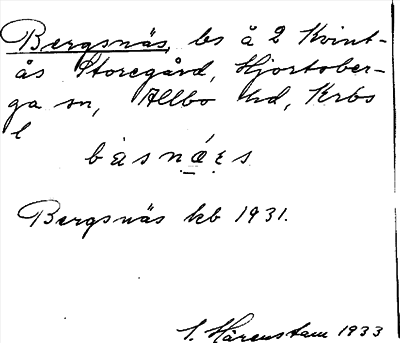 Bergsnäs, bs å 2 Kvint-
ås Storegård, Hjortsber-
ga sn, Allbo hd, Krbs
l
Bergsnäs kb 1931.
S. Härenstam 1933